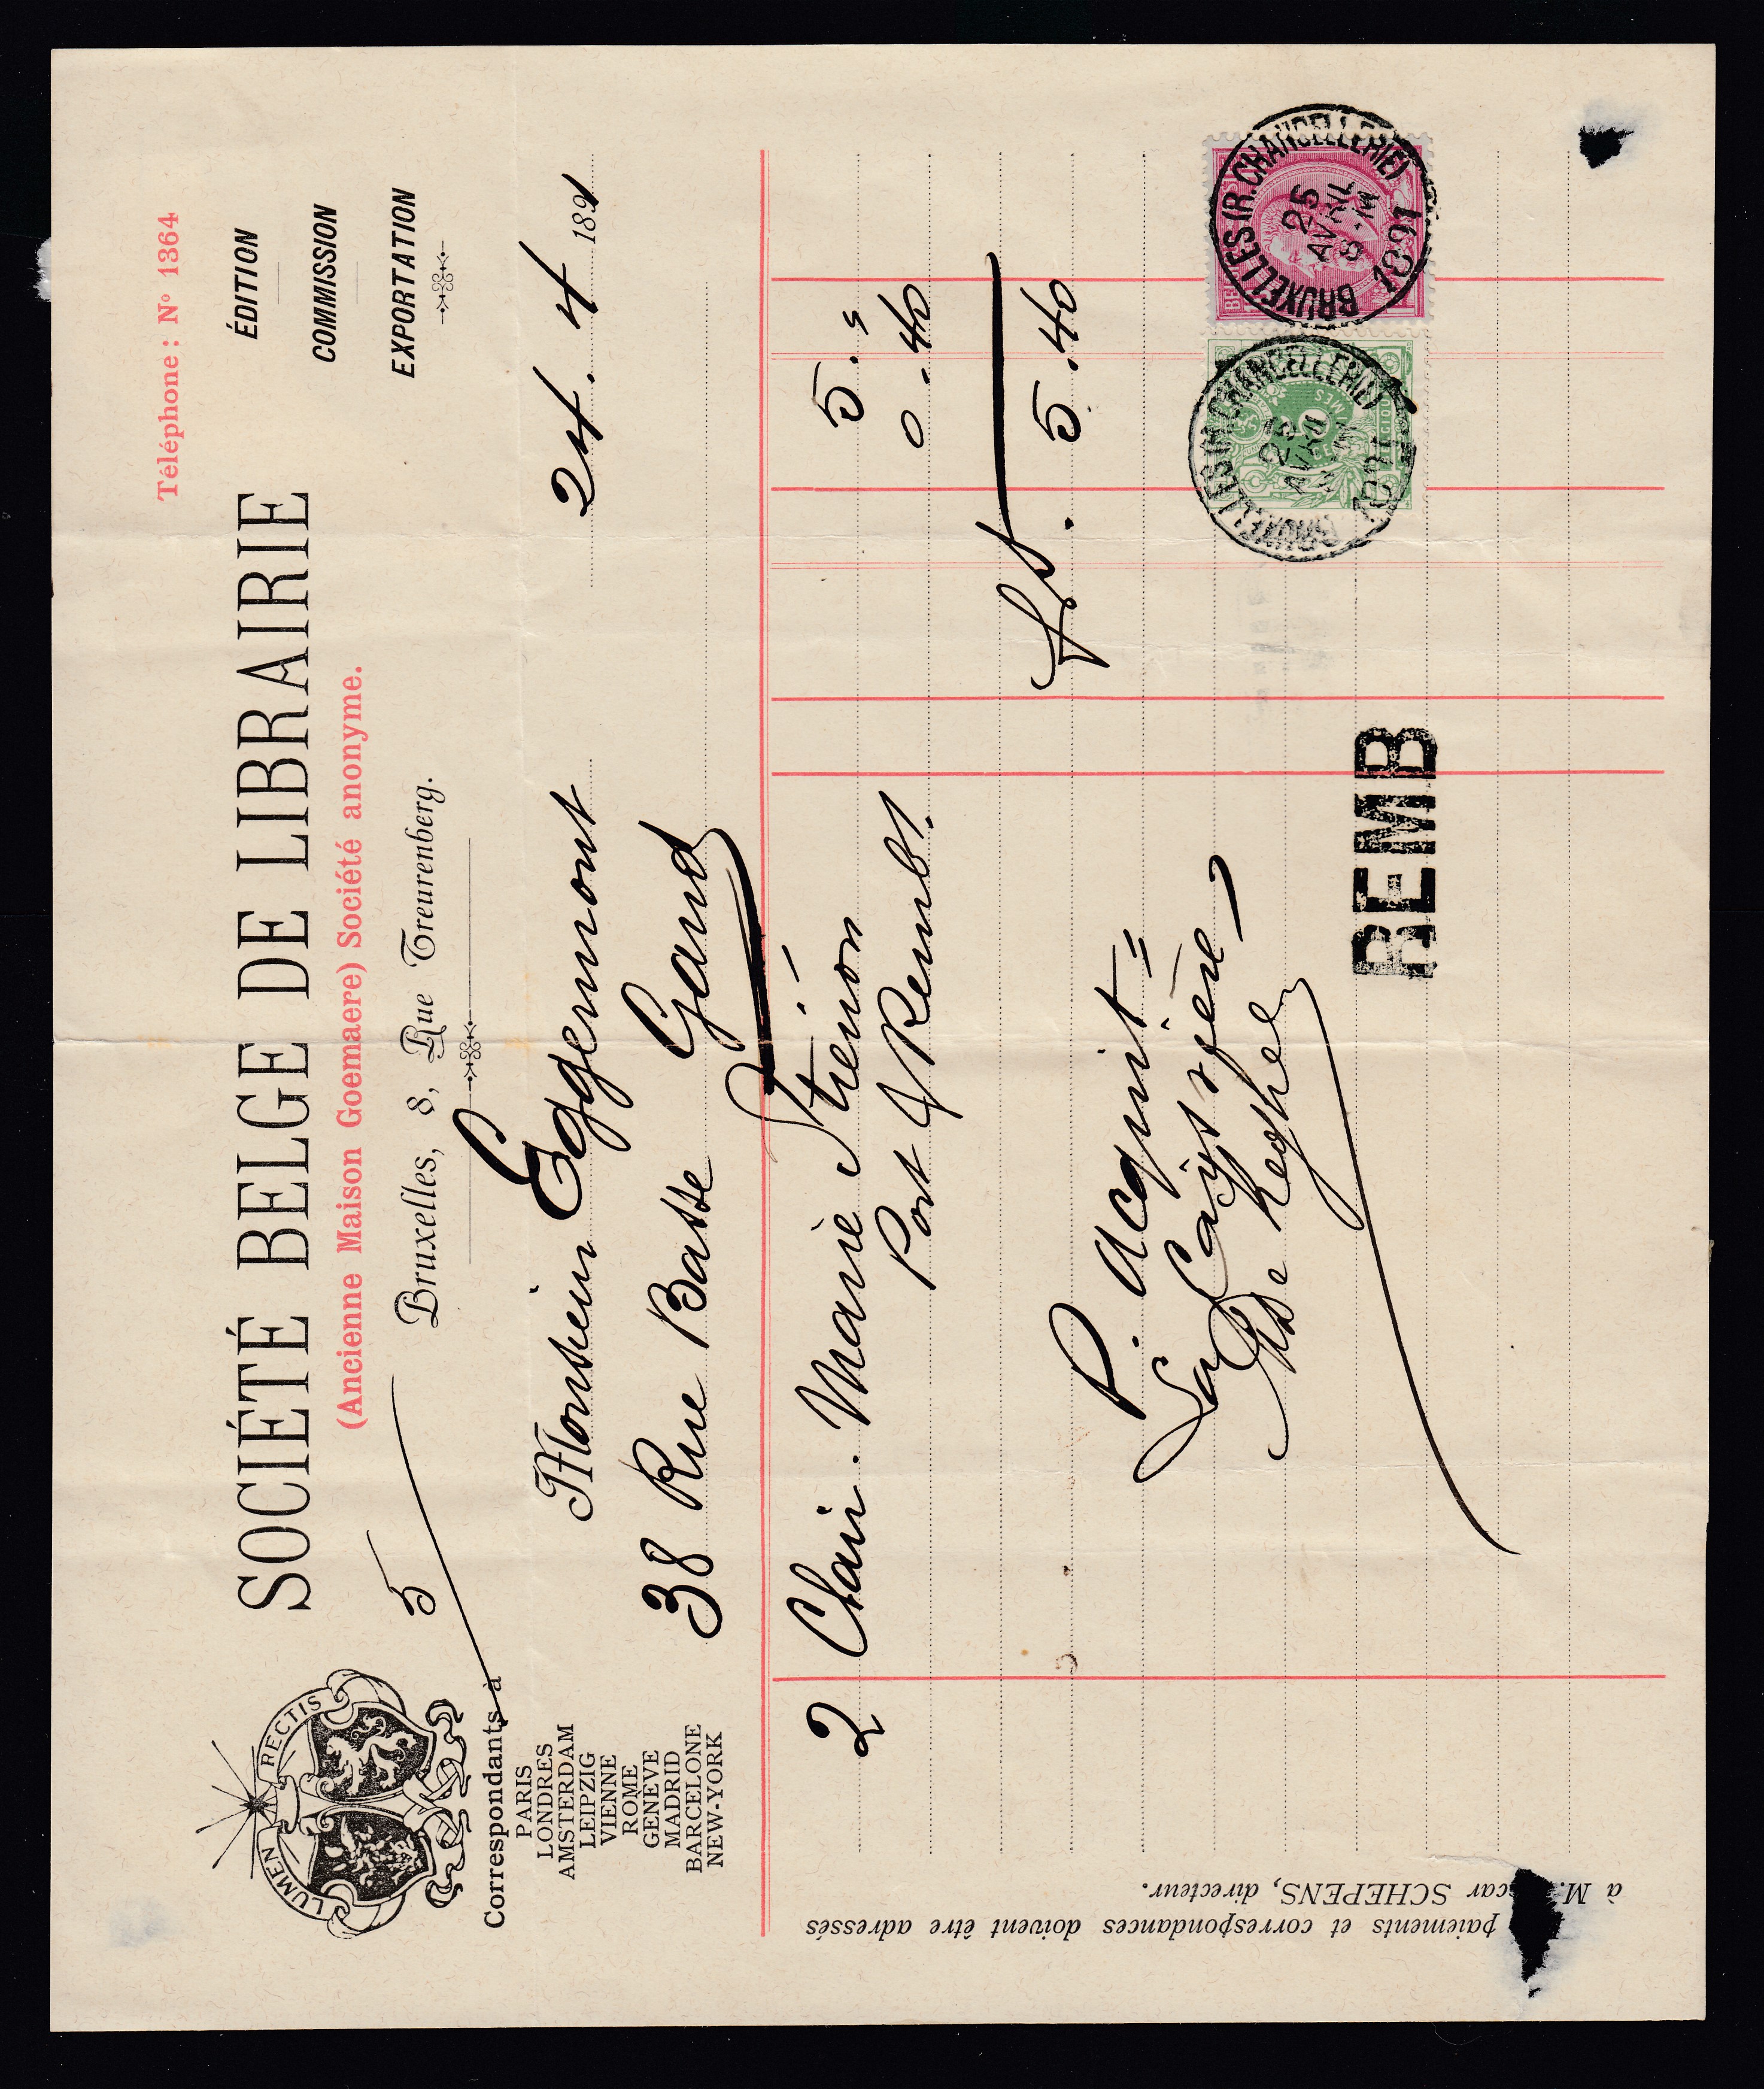 Téléphone : Nº 1364
LUMEN RECTIS
SOCIÉTÉ BELGE DE LIBRAIRIE
(Ancienne Maison Goemaere) Société anonyme.
Bruxelles, 8, Rue Treurenberg.
ÉDITION
COMMISSION
EXPORTATION
5
Correspondants à
PARIS
LONDRES
AMSTERDAM
LEIPZIG
VIENNE
ROME
GENÈVE
MADRID
BARCELONE
NEW-YORK
24. 4 1891
Monsieur Eggermont
38 Rue Basse Gand
2 Chair. Marie 5."
Port & Rembt. 0.40
ft. 5.40
P. Acquit =
La Caissière
De Reghel
REMB
BRUXELLES (R. CHANCELLERIE)
25
AVRIL
8-M
1891
BRUXELLES (R. CHANCELLERIE)
25
AVRIL
1891
paiements et correspondances doivent être adressés
à M. car SCHEPENS, directeur.